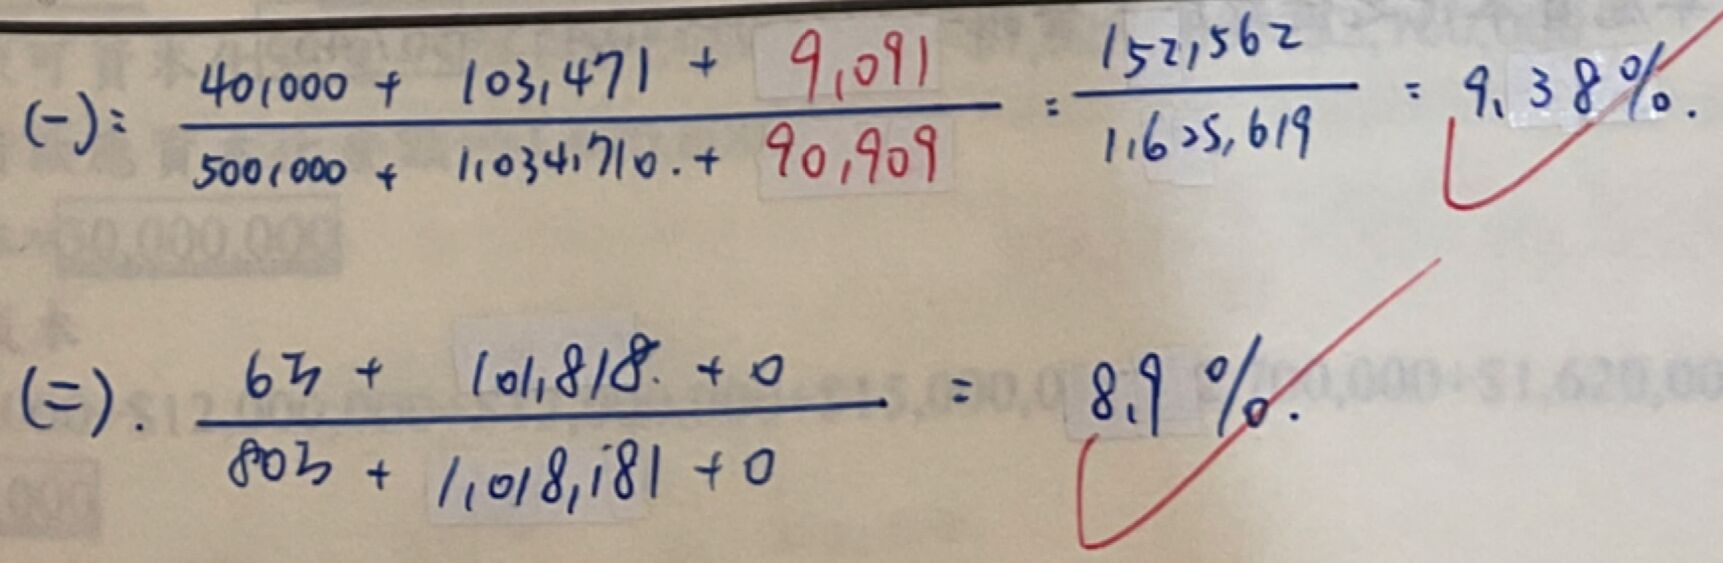 (一): 40,000 + 103,471 + 9,091 / 500,000 + 1,034,710. + 90,909 = 152,562 / 1,625,619 = 9.38%.
(二). 6万 + 101,818. + 0 / 80万 + 1,018,181 + 0 = 8.9%.